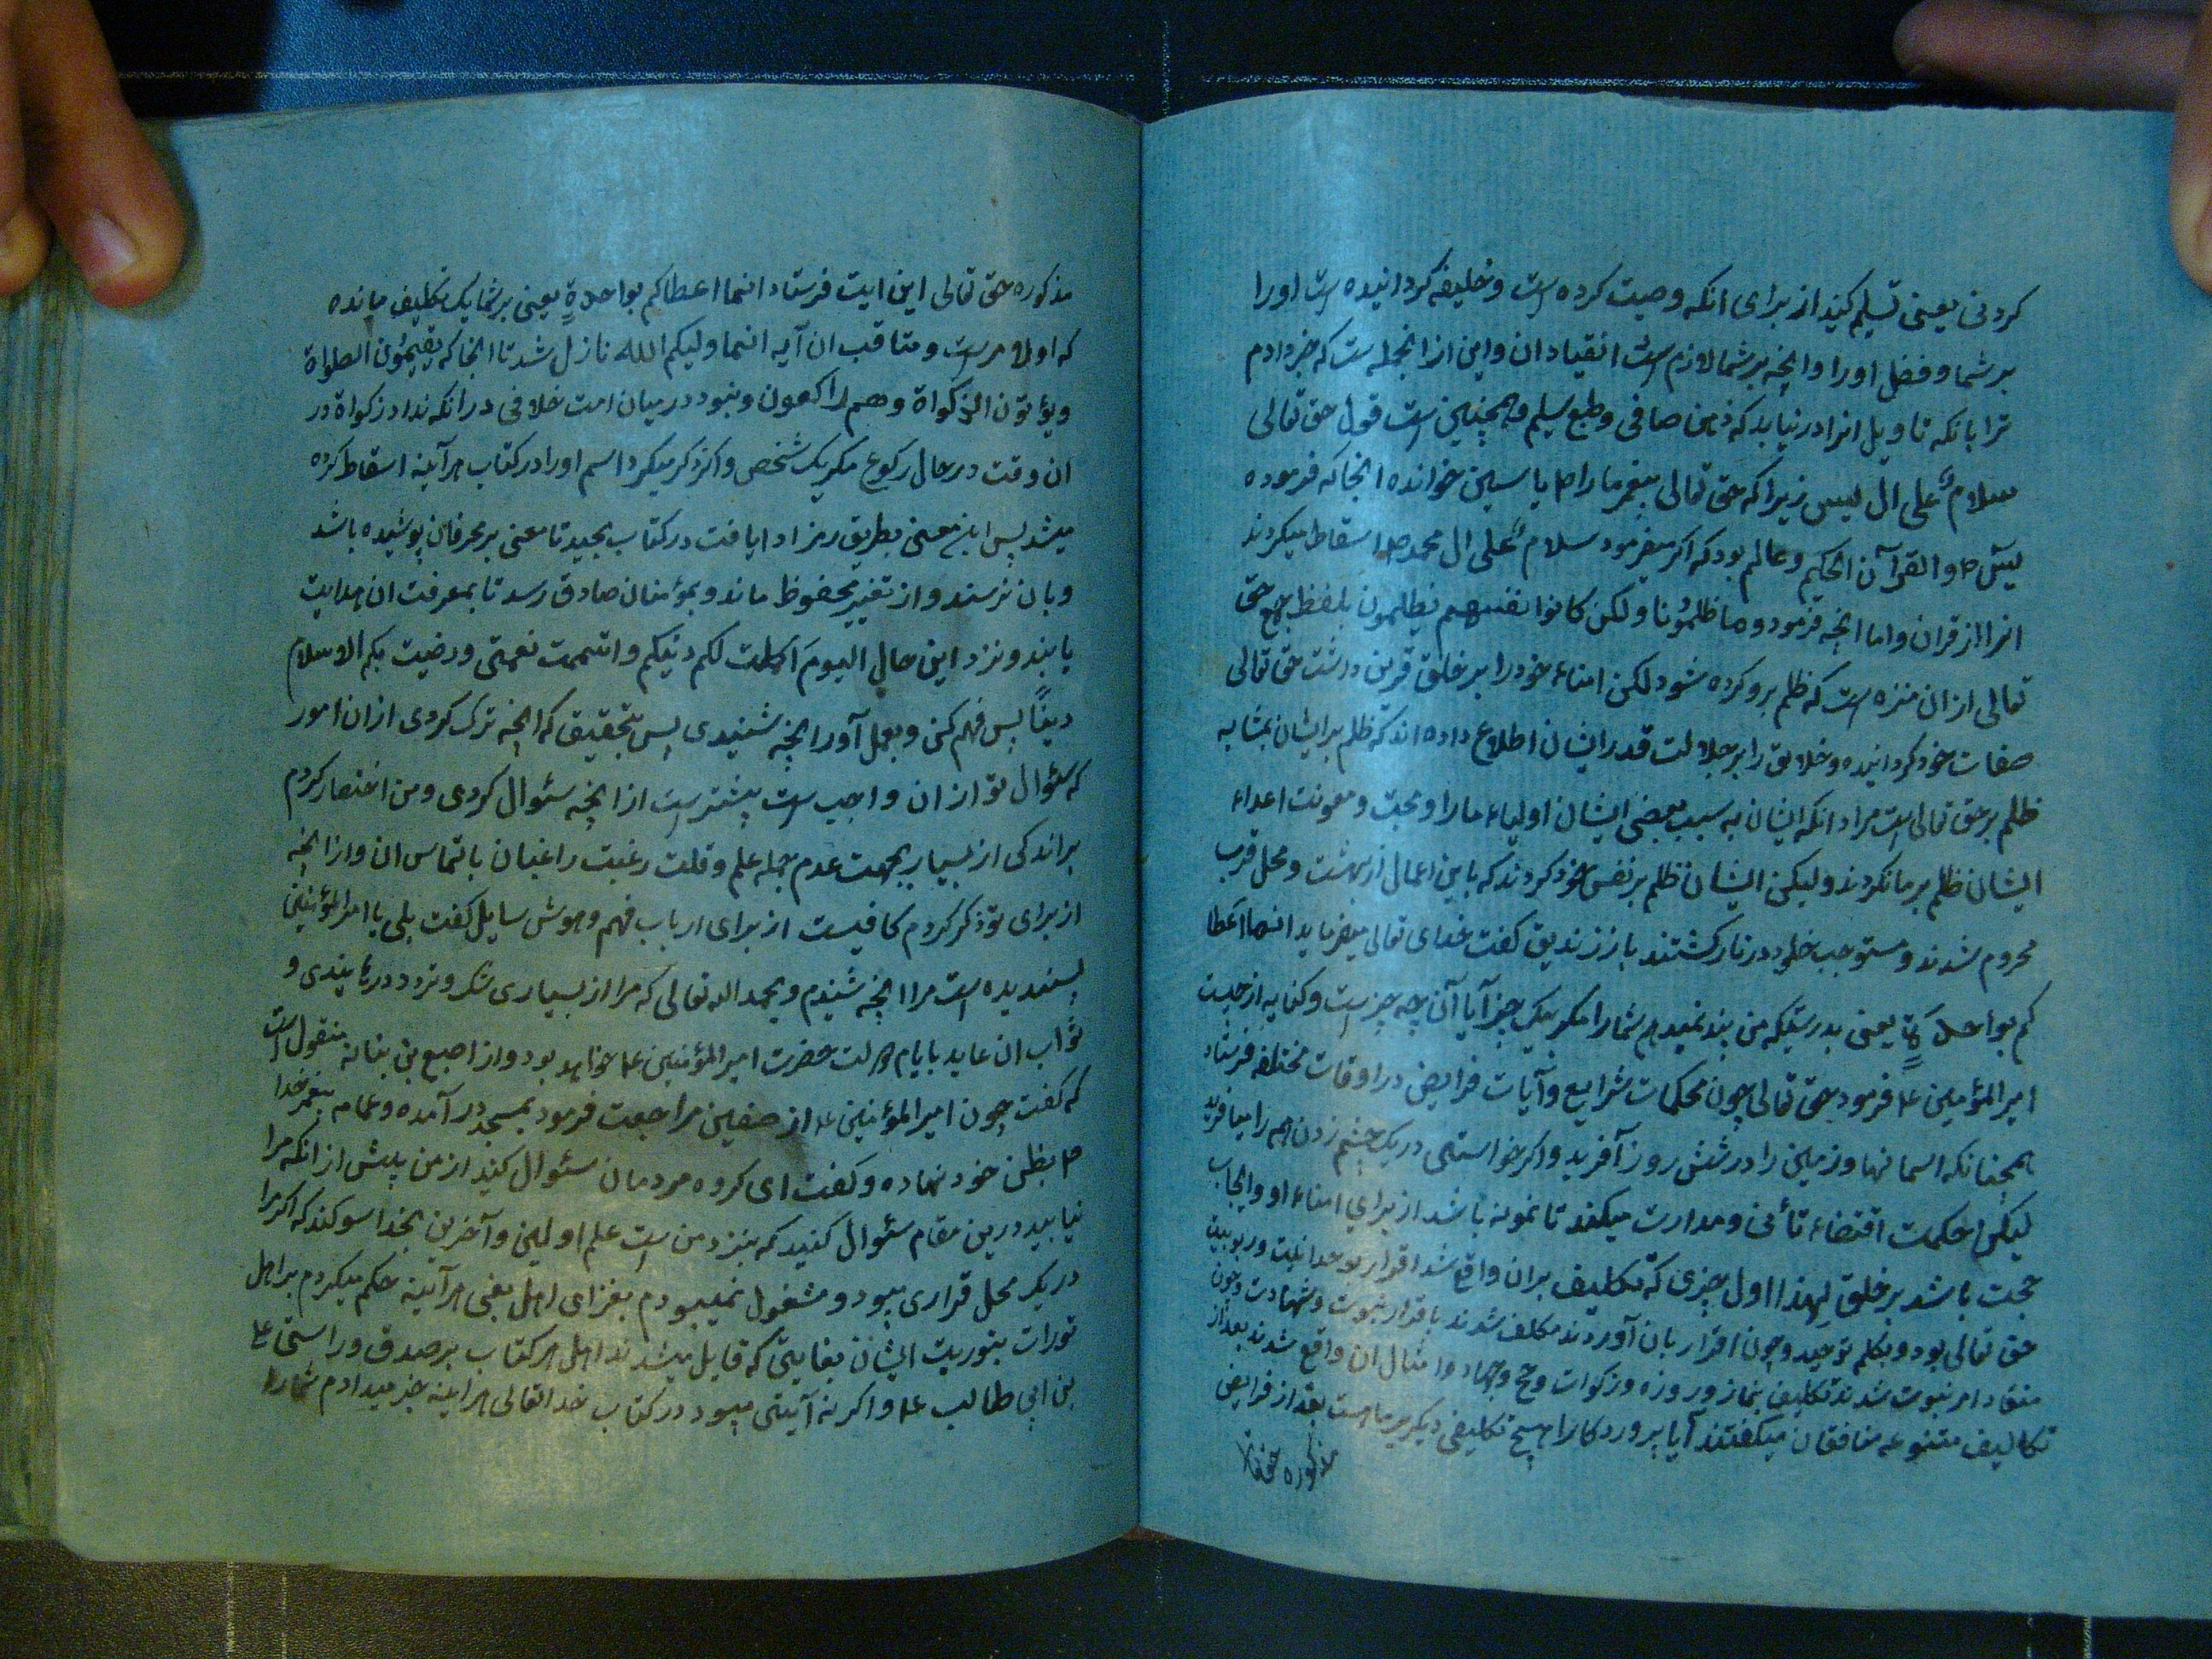 کردنی یعنی تسلیم کنید از برای انکه وصیت کرده است و خلیفه کردانیده است اورا
بر شما و فضل اورا و انچه بر شما لازم است انقیاد ان و این از انجمله است که خبر دادم
ترا بانکه تاویل انرا در نیابد که ذهن صافی و طبع سلیم و همچنین است قول حق تعالی
سلام علی ال لیس زیرا که حق تعالی پیغمبر ما را ص یاسین خوانده انجا که فرموده
لیس ص والقرآن الحکیم و عالم بود که اکر میفرمود سلام علی ال محمد ص اسقاط میکردند
انرا از قران و اما انچه فرمود و ما ظلمونا ولکن کانوا انفسهم یظلمون بلفظ جمع حق
تعالی از ان منزه است که ظلم برو کرده شود لکن امناء خود را بر خلق قرین داشت حق تعالی
صفات خود کردانیده و خلایق را بر جلالت قدر ایشان اطلاع داده اند که ظلم بر ایشان بمثابه
ظلم بر حق تعالی است مراد انکه ایشان به سبب بعضی ایشان اولیاء ما را و محبت و معونت اعداء
ایشان ظلم بر ما نکردند و لیکن ایشان ظلم بر نفس خود کردند که باین اعمال از بهشت و محل قرب
محروم شدند و مستوجب خلود در نار کشتند باز زندیق کفت خدای تعالی میفرماید انما اعظا
کم بواحدة یعنی بدرستیکه من پند نمیدهم شما را مکر بیک چیز آیا آن چه چیز است و کنایه از چیست
امیرالمؤمنین ع فرمود حق تعالی چون محکمات شرایع و آیات فرایض در اوقات مختلفه فرستاد
همچنانکه اسمانها و زمین را در شش روز آفرید و اکر خواستی در یک چشم زدن همه را میافرید
لیکن حکمت اقتضاء تأنی و مدارت میکند تا نمونه باشد از برای امناء او و ایجاب
حجت باشد بر خلق لهذا اول چیزی که تکلیف بران واقع شد اقرار بوحدانیت و ربوبیت
حق تعالی بود و بکلم توحید و چون اقرار بان آوردند مکلف شدند باقرار نبوت و شهادت و چون
منقاد امر نبوت شدند تکلیف بنماز و روزه و زکوات و حج و جهاد و امثال ان واقع شدند بعد از
تکالیف متنوعه منافقان میکفتند آیا پروردکار را هیچ تکلیفی دیکر بر ما هست بعد از فرایض
مذکوره حق تعالی
مذکوره حق تعالی این ایت فرستاد انما اعظاکم بواحدة یعنی بر شما یک تکلیف مانده
که اولا امر است و متاقب ان آیه انما ولیکم الله نازل شد تا انجا که یقیمون الصلواة
ویؤتون الزکواة وهم راکعون و نبود در میان امت خلافی در انکه نداد زکواة در
ان وقت در حال رکوع مکر یک شخص و اکر ذکر میکرد اسم اورا در کتاب هرآینه اسقاط کرده
میشد پس این معنی بطریق رمز ادا یافت در کتاب مجید تا معنی بر محرفان پوشیده باشد
و بان نرسند و از تغییر محفوظ ماند و بمؤمنان صادق رسد تا بمعرفت ان هدایت
یابند و نزد این حال الیوم اکملت لکم دینکم و اتممت نعمتی و رضیت بکم الاسلام
دینا پس فهم کن و بعمل آور انچه شنیدی پس بتحقیق که انچه ترک کردی از ان امور
که سئوال تو از ان واجب است بیشتر است از انچه سئوال کردی و من اختصار کردم
براندکی از بسیار بجهت عدم حمله علم و قلت رغبت راغبان بالتماس ان و از انچه
از برای تو ذکر کردم کافیست از برای ارباب فهم و هوش سایل کفت بلی یا امیرالمؤمنین
پسندیده است مرا انچه شنیدم و بحمد الله تعالی که مرا از بسیاری شک و تردد رهانیدی و
ثواب ان عاید بایام دولت حضرت امیرالمؤمنین ع خواهد بود و از اصبغ بن نباته منقول است
که کفت چون امیرالمؤمنین ع از صفین مراجعت فرمود بمسجد در آمده و عمام پیغمبر خدا
ص بظن خود نهاده و کفت ای کروه مردمان سئوال کنید از من پیش از انکه مرا
نیابید درین مقام سئوال کنید که بنزد من است علم اولین و آخرین بخدا سوکند که اکر مرا
در یک محل قراری میبود و مشغول نمیبودم بغزای اهل بغی هرآینه حکم میکردم بر اهل
تورات بتوریت ایشان بغایتی که قایل میشدند اهل هر کتاب بر صدق و راستی ع
بن ابی طالب ع و اکر نه آیتی میبود در کتاب خدا تعالی هراینه خبر میدادم شما را